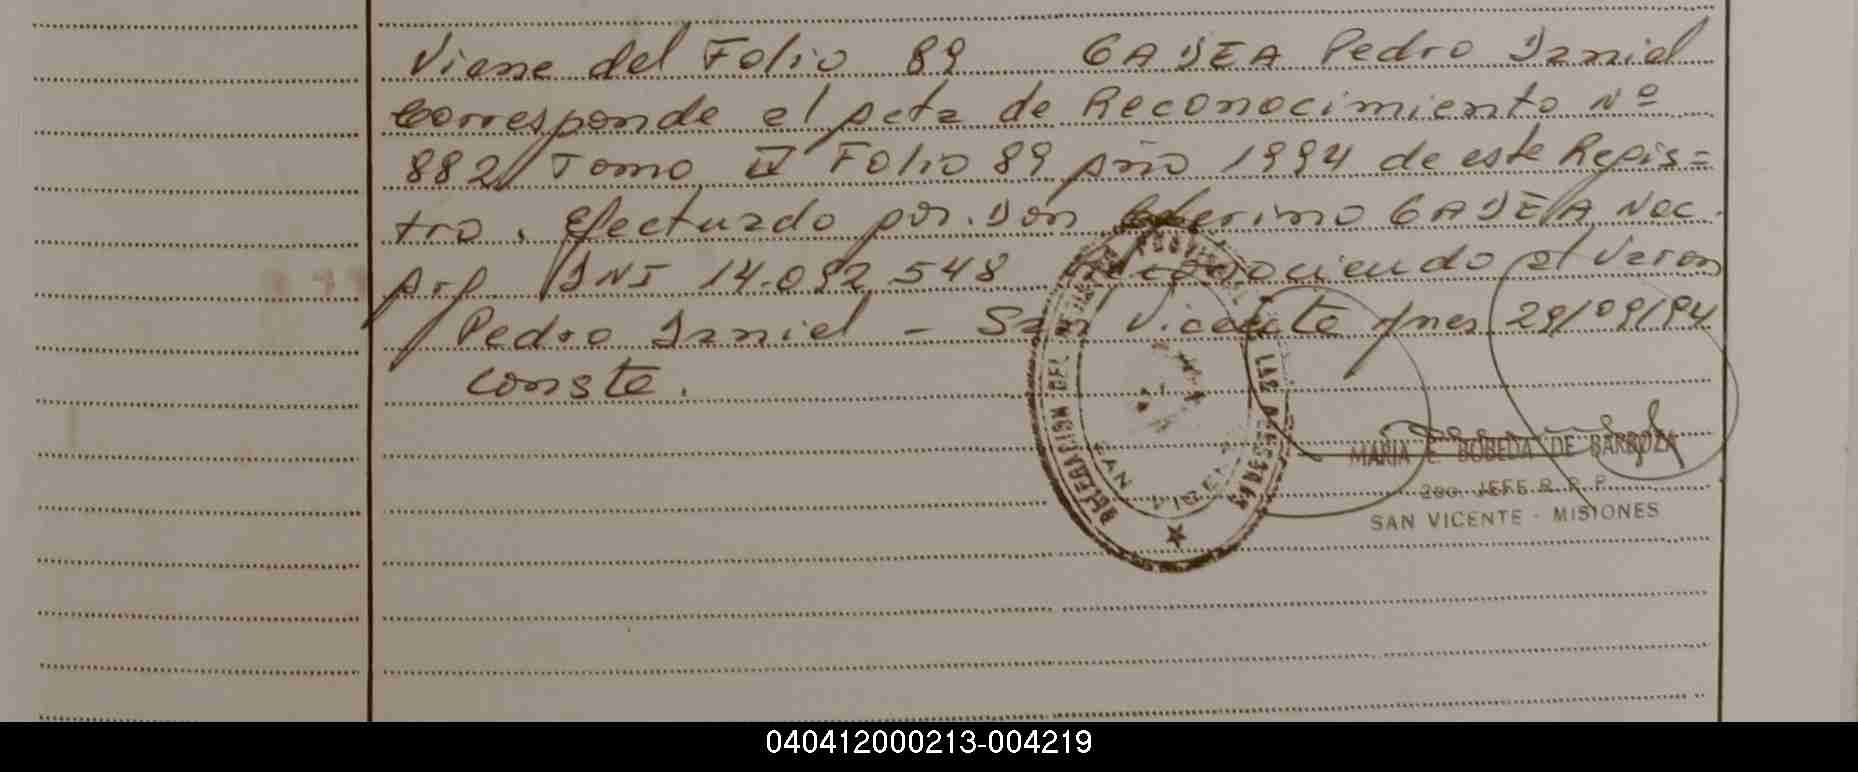 Viene del Folio 89 GADEA Pedro Daniel
Corresponde al Acta de Reconocimiento Nº
882 Tomo IV Folio 89 Año 1994 de este Regis=
tro. Efectuado por Don GADEA Nac.
Arg. DNI 14.092.548 reconociendo al Varon
Pedro Daniel - San Vicente Mnes 29/09/94
Conste.
DELEGACION DEL REGISTRO PROVINCIAL DE LAS PERSONAS
MARIA E. BOBEDA DE BARBOZA
2do. JEFE R. P. P.
SAN VICENTE - MISIONES
040412000213-004219